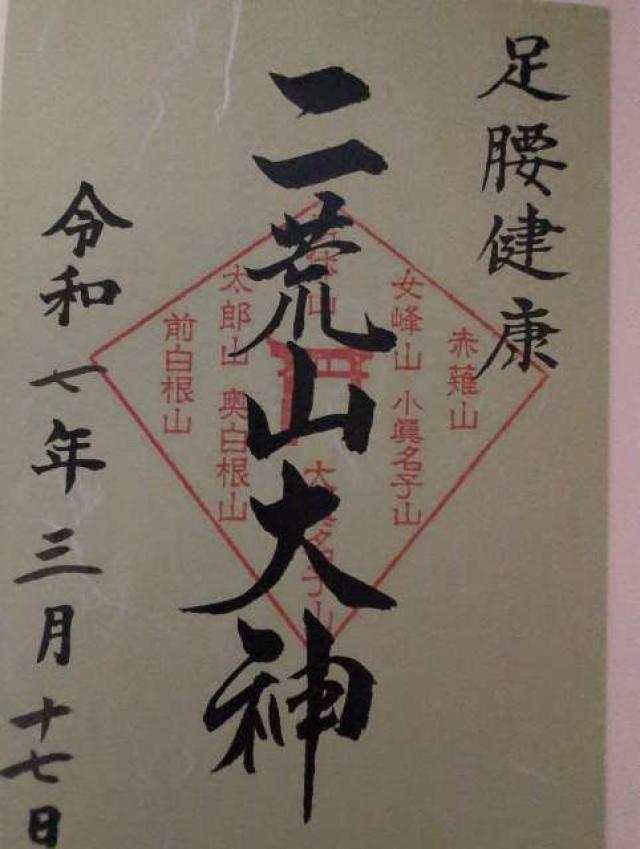 足腰健康
二荒山大神
令和七年三月十七日
赤薙山
女峰山 小眞名子山
大眞名子山
太郎山 奥白根山
前白根山